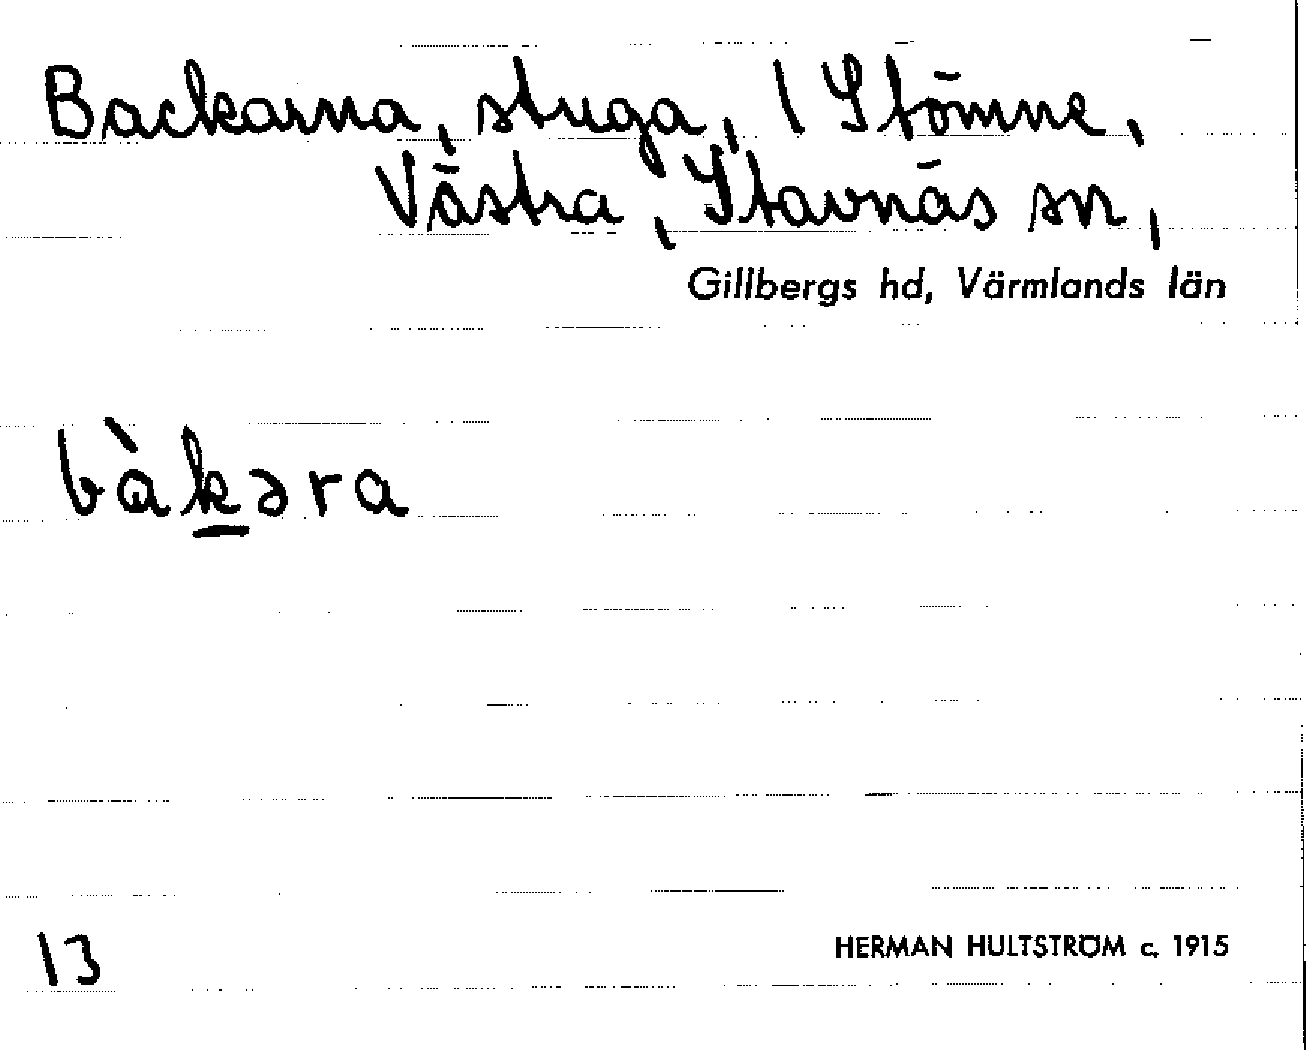 Backarna, stuga, 1 Stömne,
Västra, Stavnäs sn,
Gillbergs hd, Värmlands län
bàkəra
13
HERMAN HULTSTRÖM c. 1915